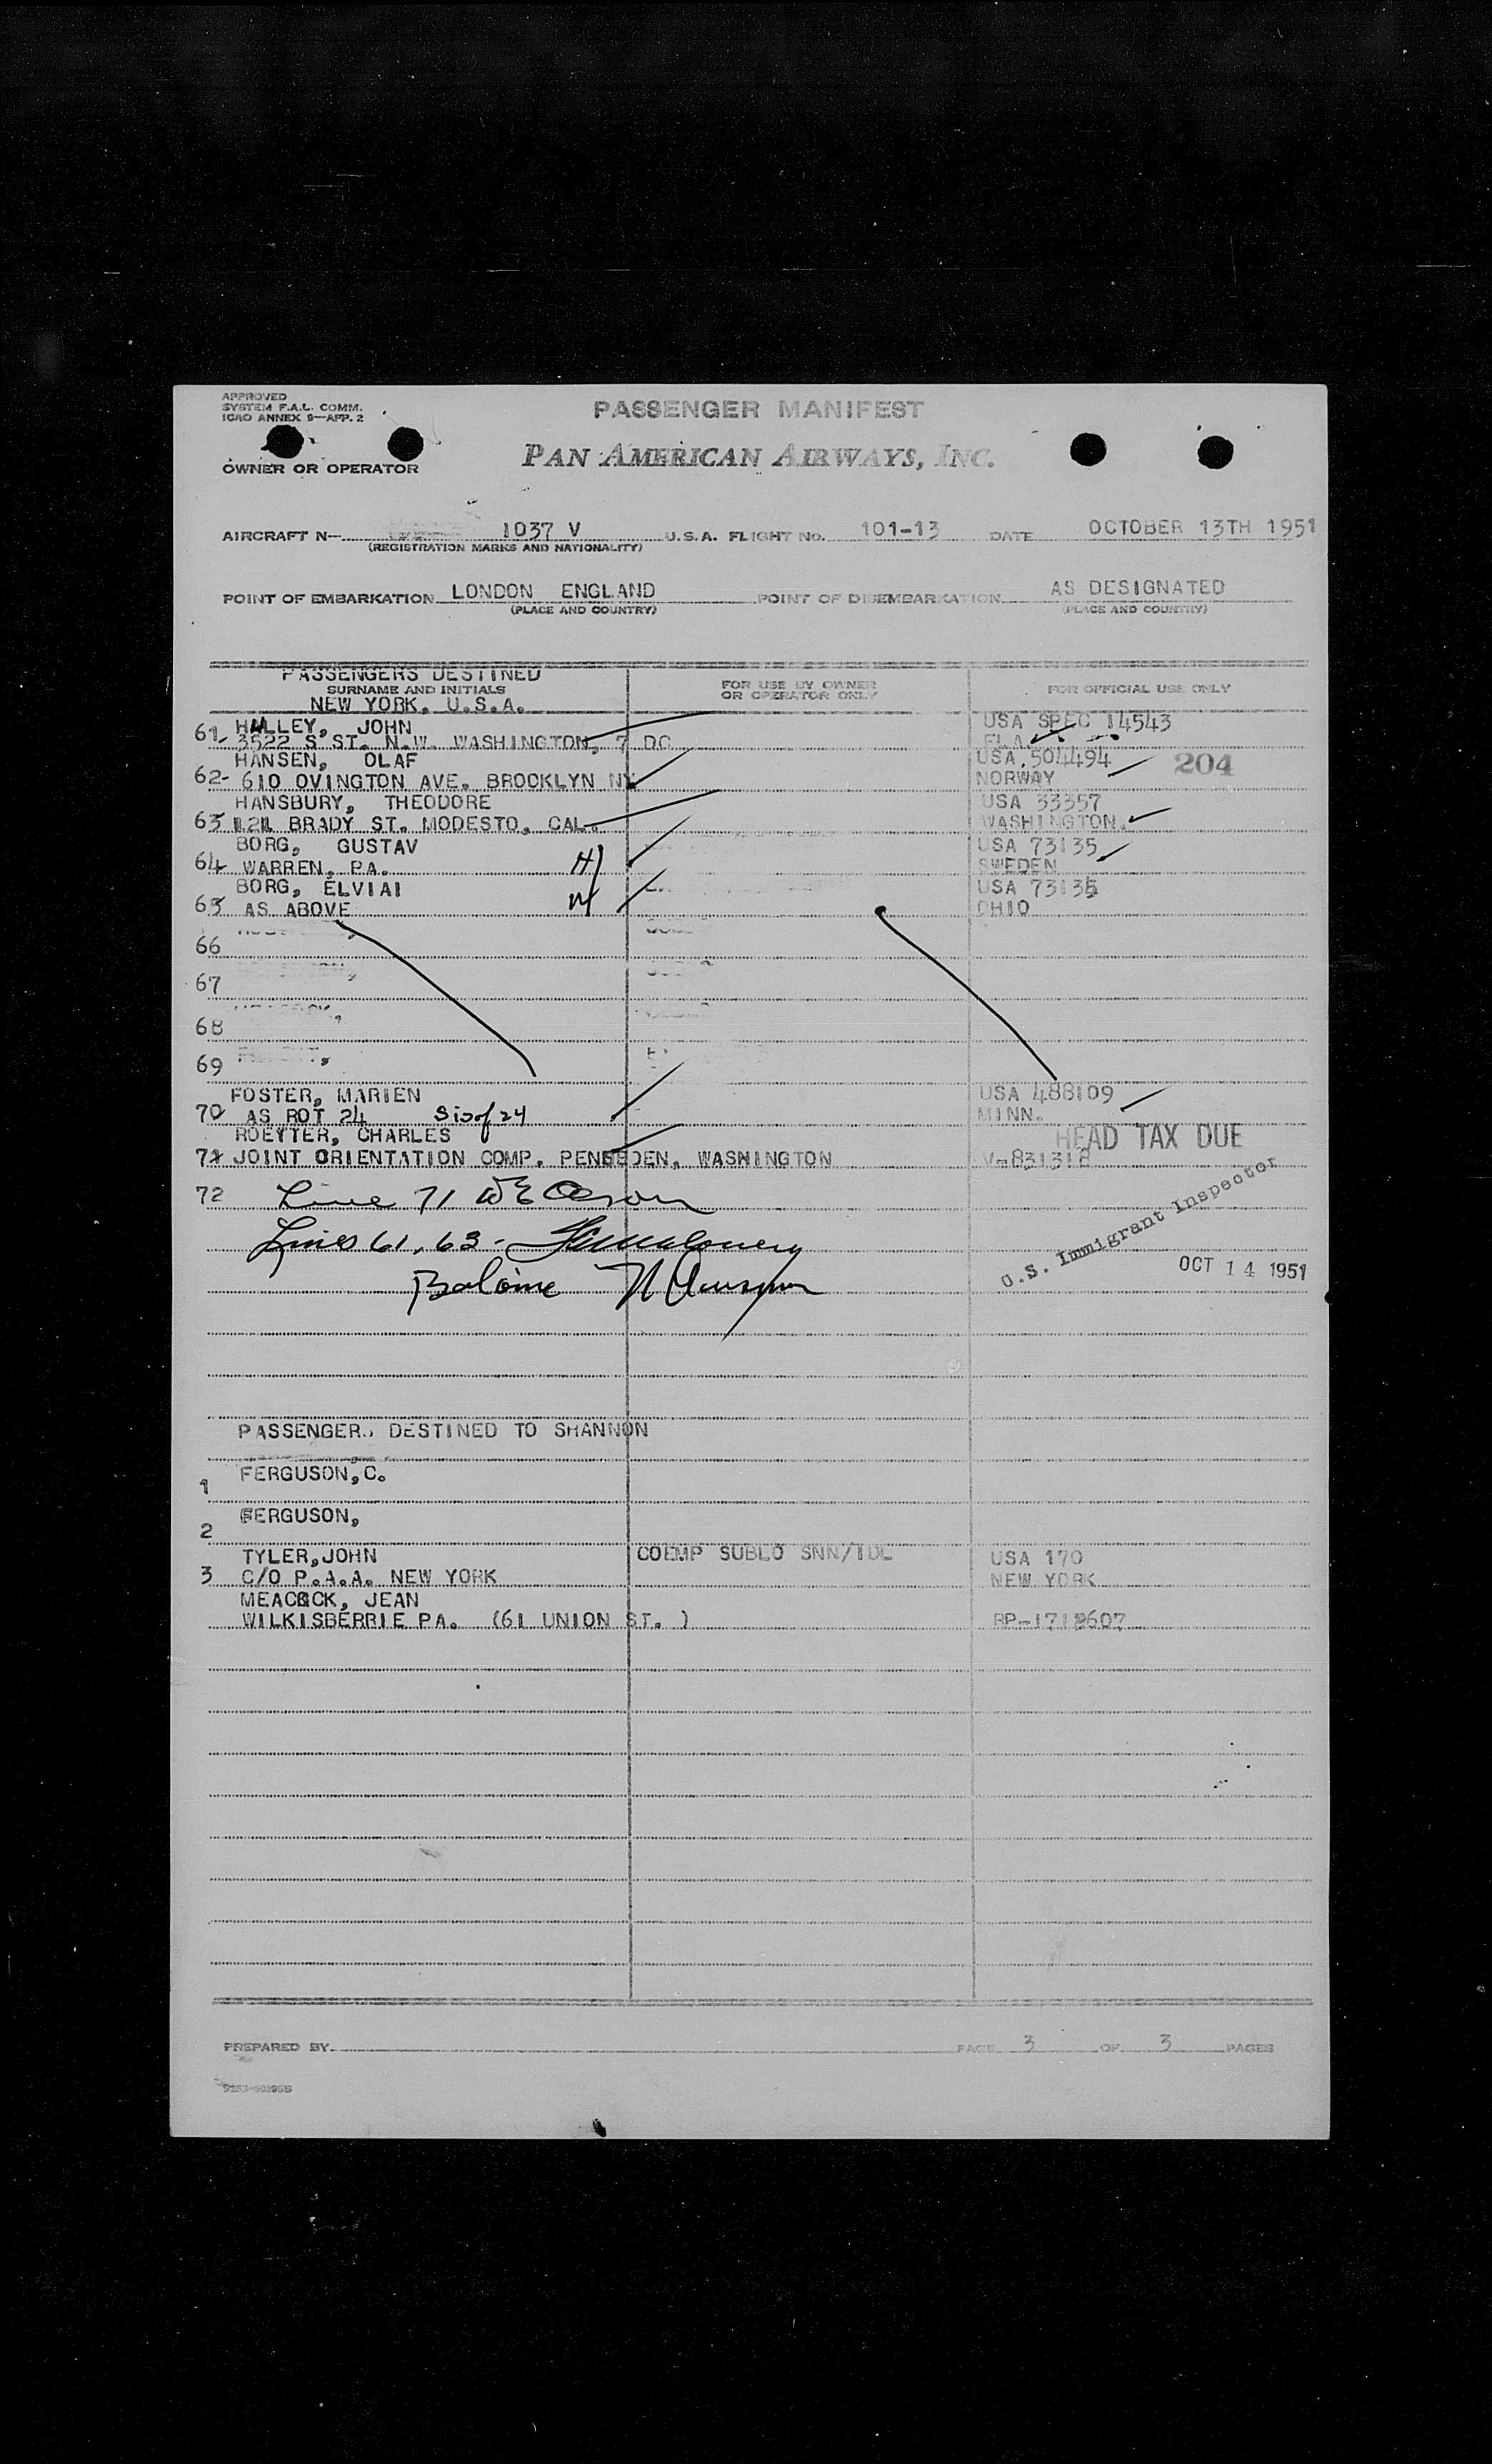 APPROVED
SYSTEM F.A.L. COMM.
ICAO ANNEX 9—APP. 2
PASSENGER MANIFEST
OWNER OR OPERATOR
PAN AMERICAN AIRWAYS, INC.
AIRCRAFT N— 1037 V U.S.A. FLIGHT No. 101-13 DATE OCTOBER 13TH 1951
(REGISTRATION MARKS AND NATIONALITY)
POINT OF EMBARKATION LONDON ENGLAND POINT OF DISEMBARKATION AS DESIGNATED
(PLACE AND COUNTRY) (PLACE AND COUNTRY)
PASSENGERS DESTINED
SURNAME AND INITIALS
NEW YORK, U.S.A.
FOR USE BY OWNER
OR OPERATOR ONLY
FOR OFFICIAL USE ONLY
HALLEY, JOHN USA SPEC 14543
61 3522 S ST. N.W. WASHINGTON, 7 DC FLA.
HANSEN, OLAF USA 504494
62- 610 OVINGTON AVE. BROOKLYN NY NORWAY 204
HANSBURY, THEODORE USA 33357
63 121 BRADY ST. MODESTO, CAL. WASHINGTON.
BORG, GUSTAV USA 73135
64 WARREN, PA. H SWEDEN
BORG, ELVIAI USA 73135
65 AS ABOVE W OHIO
66
67
68
69
FOSTER, MARIEN USA 488109
70 AS ROT 24 Sis of 24 MINN.
ROEYTER, CHARLES HEAD TAX DUE
71 JOINT ORIENTATION COMP. PENGEDEN, WASHINGTON V-831318
72 Line 71
Lines 61, 63-
Balance
U.S. Immigrant Inspector
OCT 14 1951
PASSENGERS DESTINED TO SHANNON
FERGUSON, C.
1
FERGUSON,
2
TYLER, JOHN COEMP SUBLO SNN/IDL USA 170
3 C/O P.A.A. NEW YORK NEW YORK
MEACOCK, JEAN
WILKISBERRIE PA. (61 UNION ST. ) RP-1712607
PREPARED BY PAGE 3 OF 3 PAGES